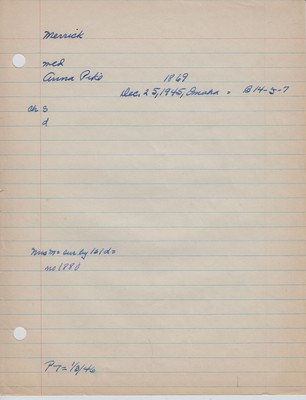 Merrick
med
Anna Pike 1869
Dec. 25, 1945, Omaha. B14-5-7
ch. S
d
Mrs M = sur by 1s 1d =
no 1880
P T = 1/6/46